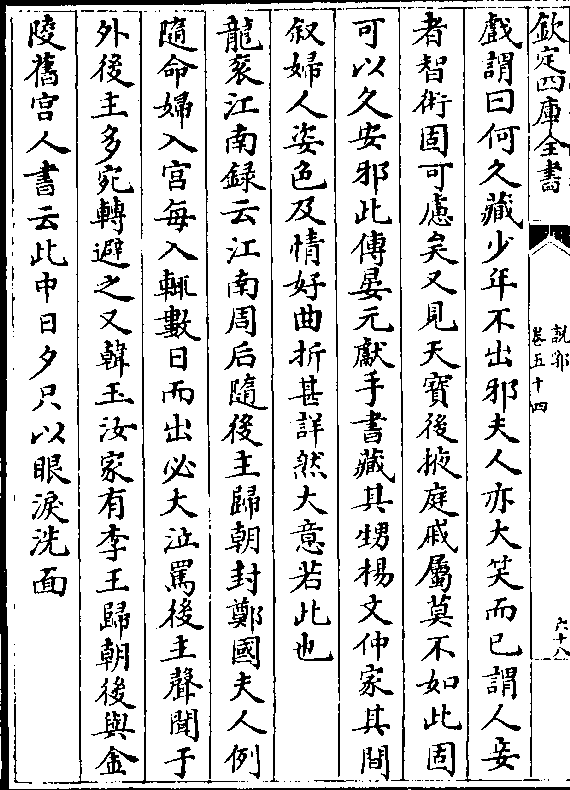 欽定四庫全書
說郛
卷五十四
六十八
戲謂曰何久藏少年不出邪夫人亦大笑而已謂人妾
者智術固可慮矣又見天寶後掖庭戚屬莫不如此固
可以久安邪此傳晏元獻手書藏其甥楊文仲家其間
叙婦人姿色及情好曲折甚詳然大意若此也
龍衮江南録云江南周后隨後主歸朝封鄭國夫人例
隨命婦入宫每入輒數日而出必大泣罵後主聲聞于
外後主多宛轉避之又韓玉汝家有李王歸朝後與金
陵舊宫人書云此中日夕只以眼淚洗面